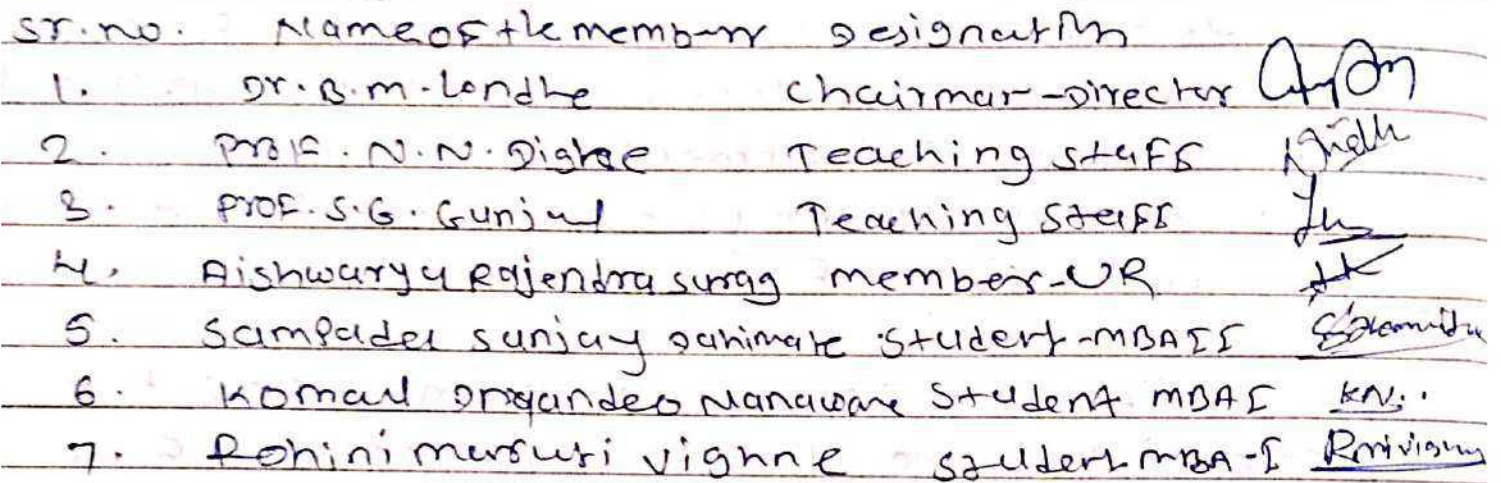 Sr.no. Name of the member Designation
1. Dr.B.M.Londhe Chairman-Director
2. Prof.N.N.Dighe Teaching staff
3. Prof.S.G.Gunjal Teaching Staff
4. Aishwarya Rajendra member-UR
5. Sampada sanjay Dahimate Student-MBAII
6. Komal Dnyandeo Nanaware Student MBAI KN.
7. Rohini maruti vighne student MBA-I